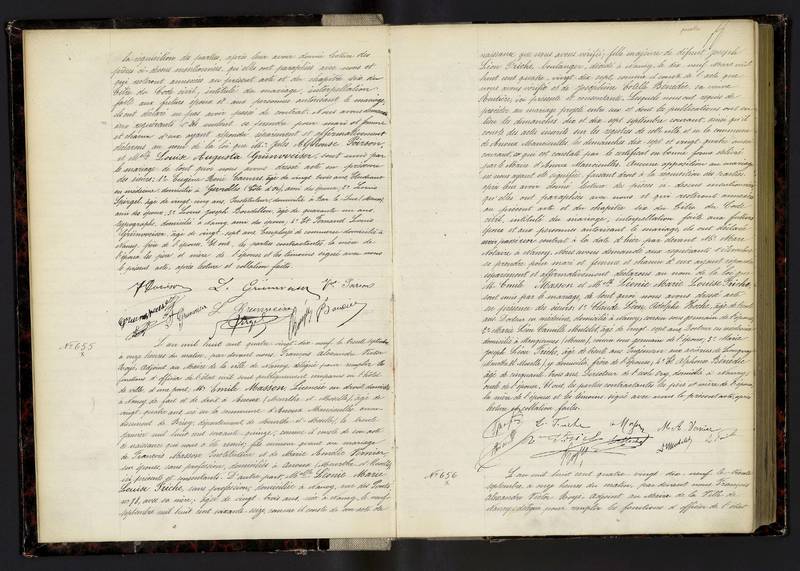 la réquisition des parties, après leur avoir donné lecture des
pièces ci-dessus mentionnées, qui elles ont paraphées avec nous et
qui resteront annexées au présent acte et du chapitre six du
titre du Code civil, intitulé du mariage, interpellation
faite aux futurs époux et aux personnes autorisant le mariage,
ils ont déclaré ne pas avoir passé de contrat. Nous avons demandé
aux requérants s'ils veulent se prendre pour mari et femme
et chacun d'eux ayant répondu séparément et affirmativement
déclarons au nom de la loi que Mr. Jules Alphonse Poirson,
et Melle Louise Augusta Grünveiser, sont unis par
le mariage de tout quoi nous avons dressé acte en présence
des sieurs: 1° Eugène René âgé de vingt trois ans, Etudiant
en médecine, domicilié à (Côte d'or), ami des époux; 2° Louis
âgé de vingt cinq ans, Instituteur, domicilié à
ami des époux; 3° Louis Joseph Bourdillon, âgé de quarante un ans,
typographe, domicilié à Nancy, ami des époux; 4° Fernand Louis
Grünveiser, âgé de vingt sept ans, Employé de commerce, domicilié à
Nancy, frère de l'épouse. Et ont, les parties contractantes, la mère de
l'époux, les père et mère de l'épouse et les témoins signé avec nous
le présent acte, après lecture et collation faite.
J. Poirson L. Grünveiser
L. Grünveiser
N° 655
L'an mil huit cent quatre vingt dix neuf, le trente septembre
à onze heures du matin, par devant nous, François Alexandre Victor
adjoint au Maire de la ville de Nancy, délégué pour remplir les
fonctions d'officier de l'état civil, sont publiquement comparus en l'hôtel
de ville, d'une part, Mr. Emile Masson, Licencié en droit, domicilié
à Nancy de fait et de droit à Anoux (Meurthe et Moselle), âgé de
vingt quatre ans, né en la commune d'Anoux Mancieulles, arron-
dissement de Briey, département de Meurthe et Moselle, le trente
janvier mil huit cent soixante quinze, comme il conste de son acte
de naissance qui nous a été remis; fils mineur quant au mariage
de François Masson, Instituteur et de Marie Amélie Vernier,
son épouse, sans profession, domiciliés à Anoux (Meurthe et Moselle),
ici présents et consentants. D'autre part, Melle Léonie Marie
Louise Friche, sans profession, domiciliée à Nancy, rue des Ponts
n° 78, avec sa mère; âgée de vingt trois ans, née à Nancy, le neuf
septembre mil huit cent soixante seize, comme il conste de son acte de
naissance que nous avons vérifié; fille majeure de défunt Joseph
Léon Friche, boulanger, décédé à Nancy, le dix neuf Août mil
huit cent quatre vingt dix sept, comme il conste de l'acte que
nous avons vérifié et de Joséphine Estelle Bénédic, sa veuve
ici présente et consentante. Lesquels nous ont requis de
procéder au mariage projeté entre eux et dont les publications ont eu
lieu les dimanches dix et dix sept septembre courant, ainsi qu'il
conste des actes inscrits sur les registres de cette ville et en la commune
de Anoux Mancieulles les dimanches dix sept et vingt quatre même
courant, ce qui est constaté par le certificat en bonne forme délivré
par le Maire d'Anoux Mancieulles. Aucune opposition au mariage
ne nous ayant été signifiée, faisant droit à la réquisition des parties,
après leur avoir donné lecture des pièces ci-dessus mentionnées
qui elles ont paraphées avec nous et qui resteront annexées
au présent acte et du chapitre six du titre du Code
civil, intitulé du mariage, interpellation faite aux futurs
époux et aux personnes autorisant le mariage, ils ont déclaré
avoir passé un contrat à la date d'hier par devant Me
Notaire à Nancy. Nous avons demandé aux requérants s'ils veulent
se prendre pour mari et femme et chacun d'eux ayant répondu
séparément et affirmativement déclarons au nom de la loi que
Mr. Emile Masson et Melle Léonie Marie Louise Friche,
sont unis par le mariage, de tout quoi nous avons dressé acte
en présence des sieurs 1° Claude Léon Adolphe Roche, âgé de trente
ans, Docteur en médecine, domicilié à Nancy, cousin germain de l'époux;
2° Marie Léon Camille Mutelet, âgé de vingt sept ans, Docteur en médecine,
domicilié à Mangiennes (Meuse), cousin germain de l'époux; 3° Marie
Joseph Léon Friche, âgé de trente ans, Ingénieur aux aciéries de Longwy
(Meurthe et Moselle), y domicilié, frère de l'épouse; 4° Alphonse Bénédic,
âgé de cinquante trois ans, Directeur de l'école domicilié à Nancy,
oncle de l'épouse. Et ont, les parties contractantes, les père et mère de l'époux
la mère de l'épouse et les témoins signé avec nous le présent acte, après
lecture et collation faite.
L. Friche E. Masson M. A. Vernier
N° 656
L'an mil huit cent quatre vingt dix neuf, le trente
septembre, à onze heures du matin, par devant nous, François
Alexandre Victor adjoint au Maire de la Ville de
Nancy, délégué pour remplir les fonctions d'officier de l'état